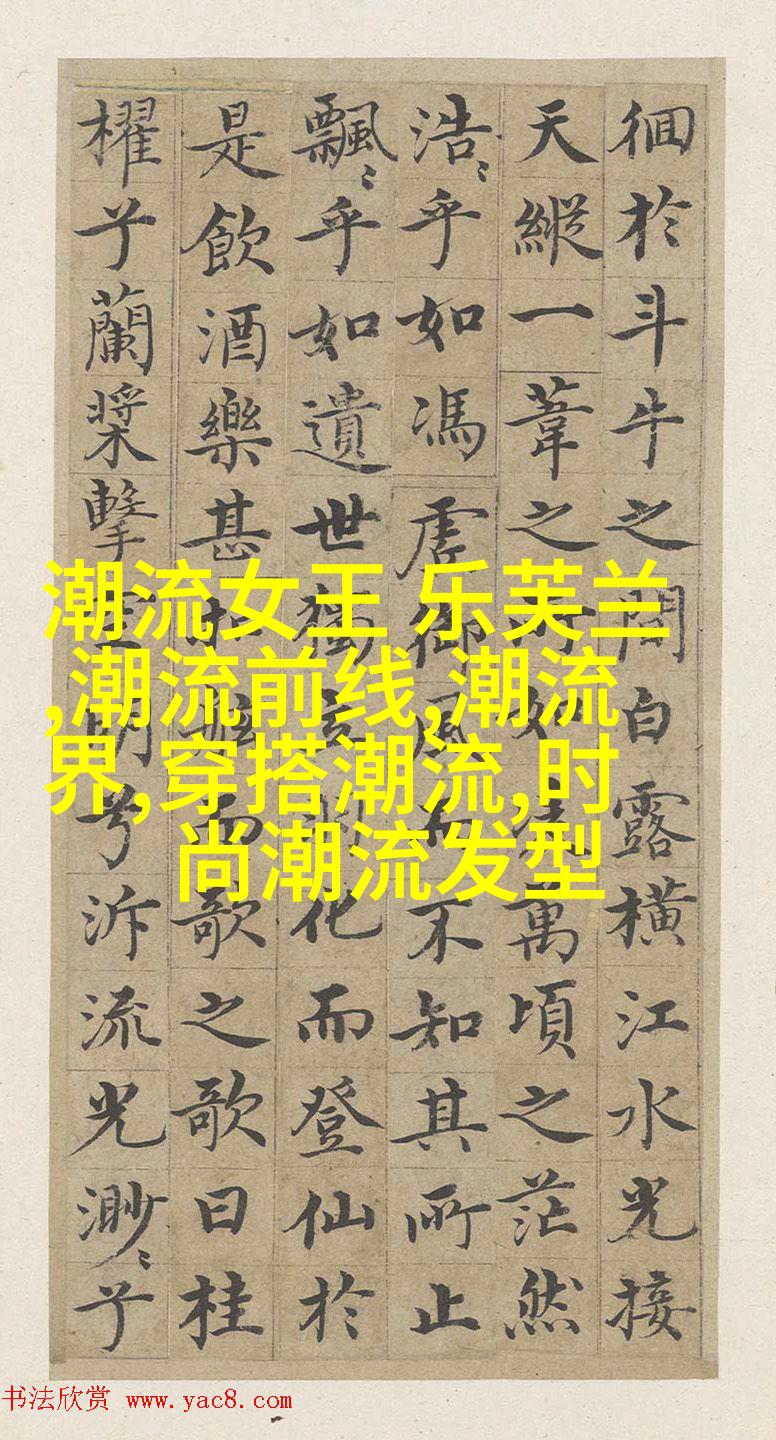 徊於斗牛之間白露橫江水光接
天縱一葦之所如凌萬頃之茫然
浩〻乎如馮虛御風而不知其所止
飄〻乎如遺世獨立羽化而登仙於
是飲酒樂甚扣舷而歌之歌曰桂
櫂兮蘭槳擊空明兮泝流光渺〻兮
潮流女王 乐芙兰
,潮流前线,潮流
界,穿搭潮流,时
尚潮流发型
书法欣赏 www.yac8.com